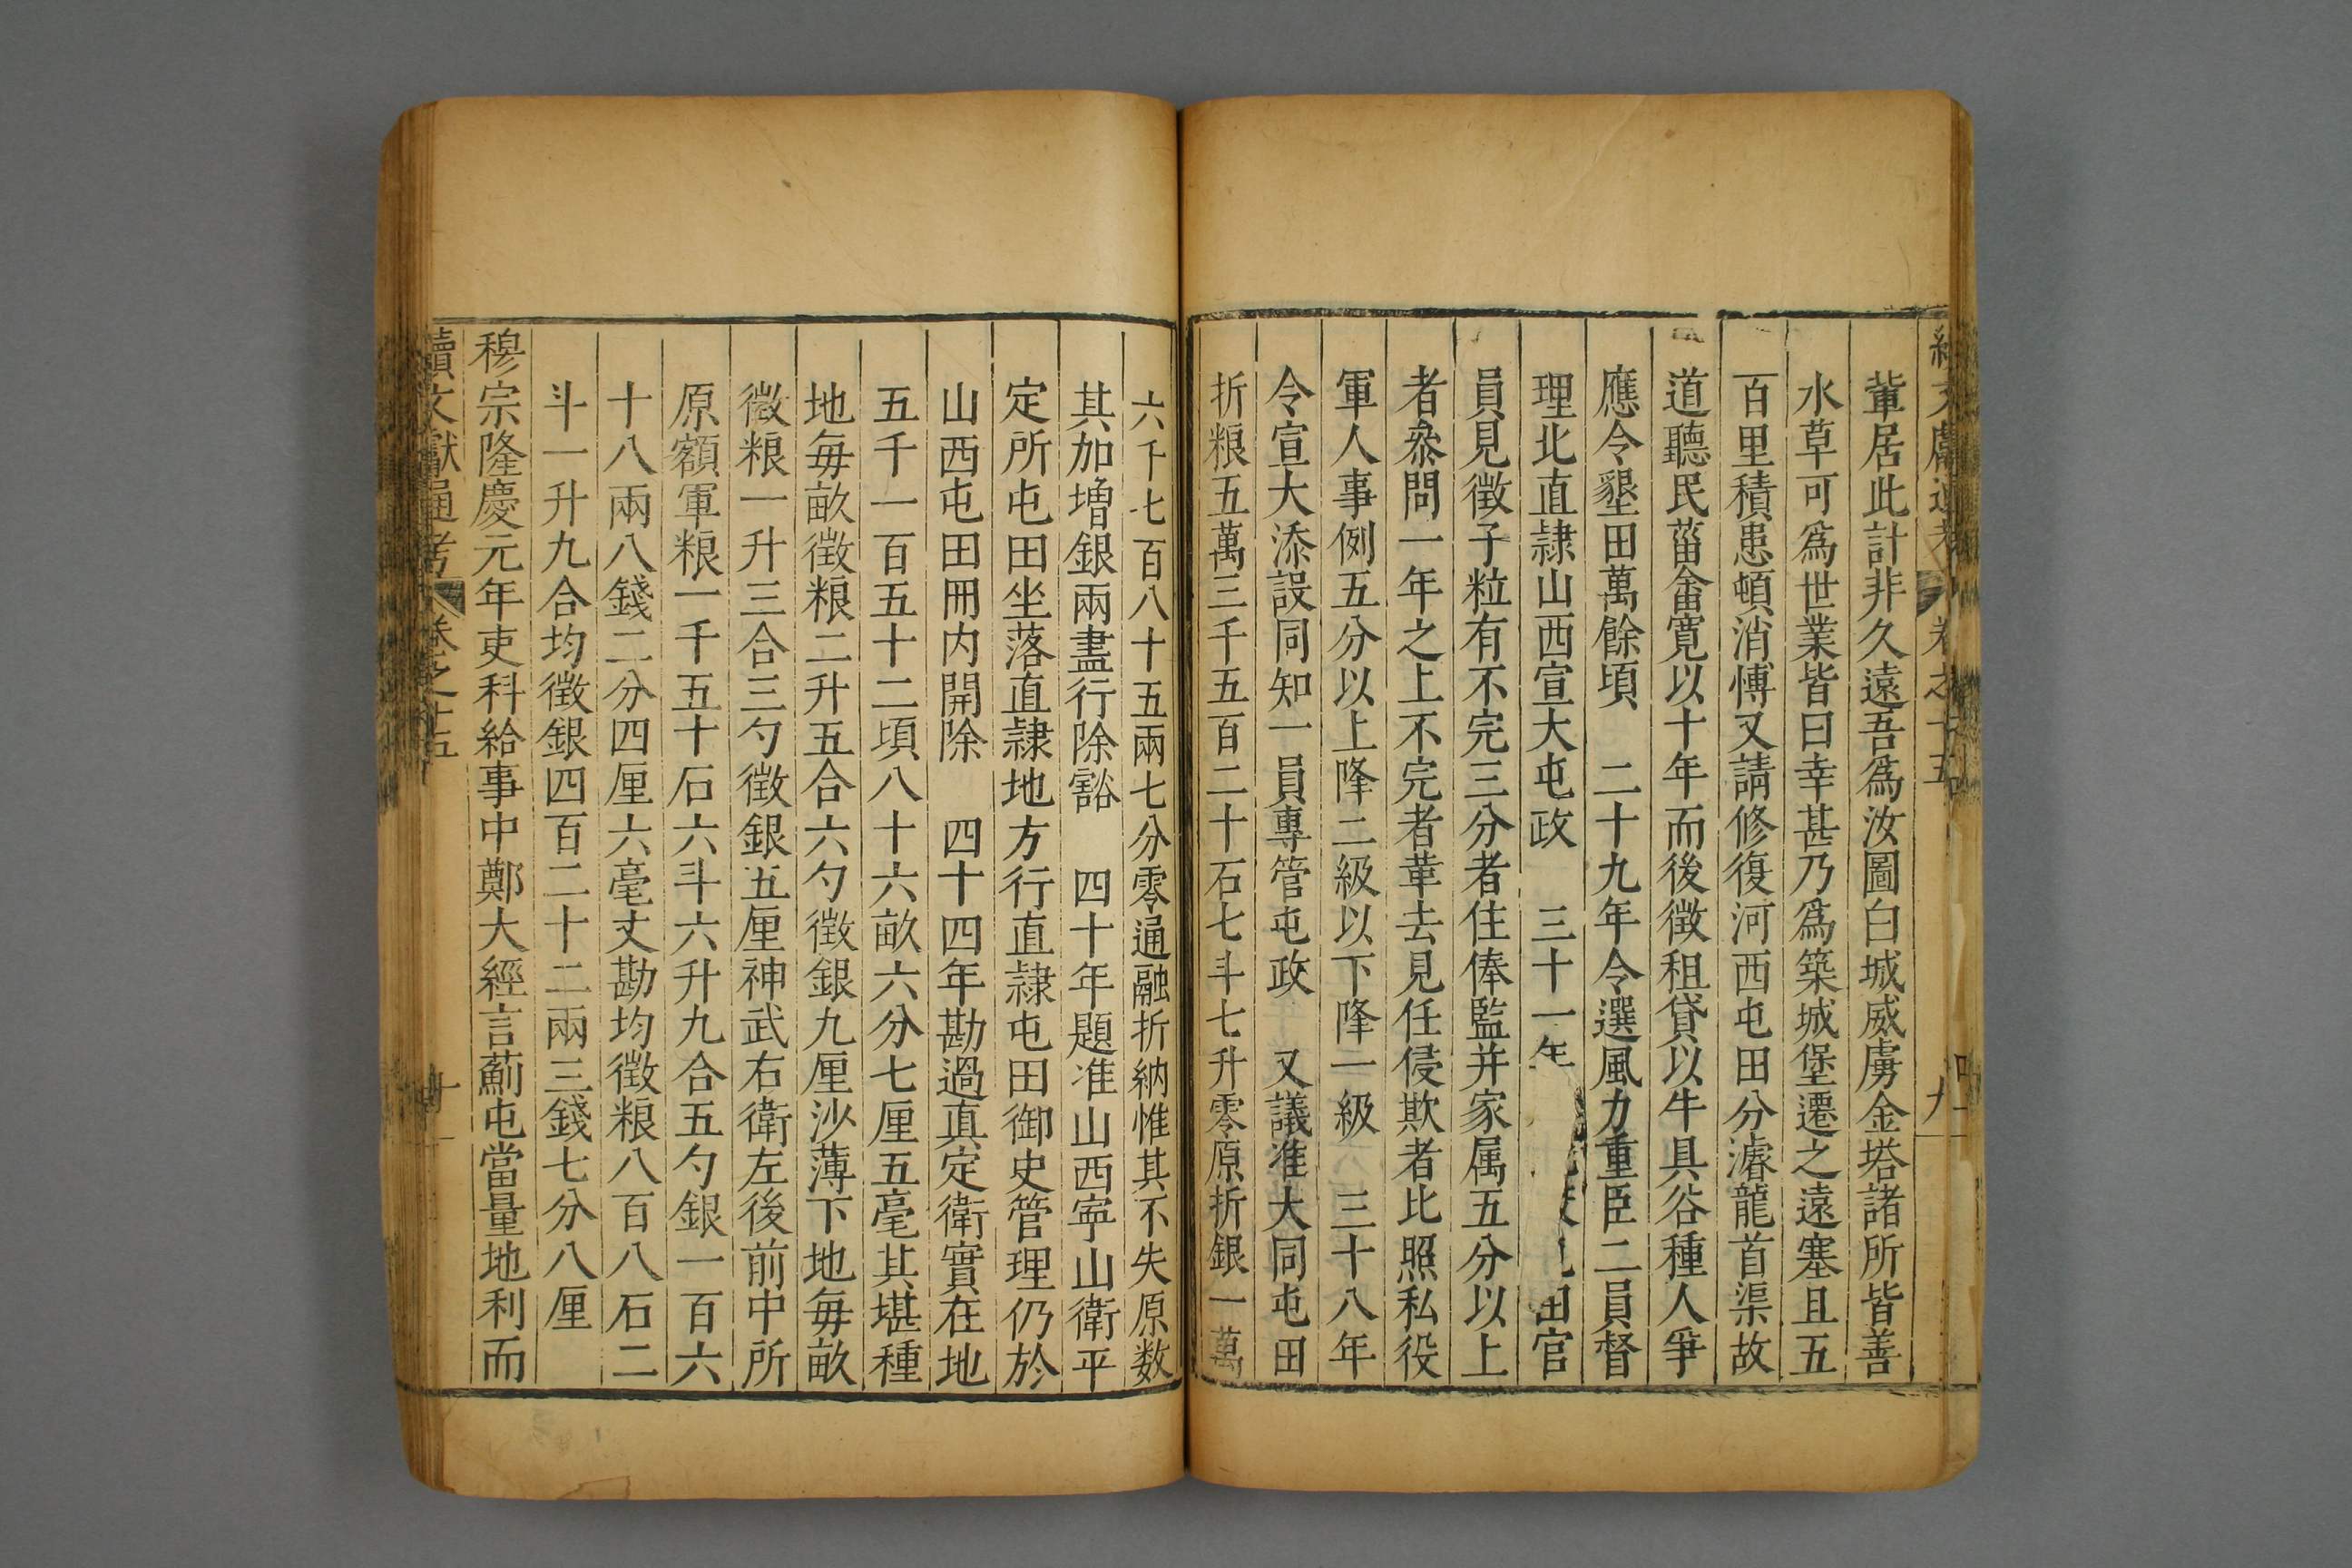 續文獻通考 卷之十五 九
軰居此計非久遠吾爲汝圖白城威虜金塔諸所皆善
水草可爲世業皆曰幸甚乃爲築城堡遷之遠塞且五
百里積患頓消愽又請修復河西屯田分濬龍首渠故
道聽民菑畬寛以十年而後徴租貸以牛具谷種人爭
應令墾田萬餘頃 二十九年令選風力重臣二員督
理北直隷山西宣大屯政 三十一年 田官
員見徴子粒有不完三分者住俸監并家属五分以上
者叅問一年之上不完者革去見任侵欺者比照私役
軍人事例五分以上降二級以下降一級 三十八年
令宣大添設同知一員專管屯政 又議准大同屯田
折粮五萬三千五百二十石七斗七升零原折銀一萬
六千七百八十五兩七分零通融折納惟其不失原数
其加增銀兩盡行除豁 四十年題准山西寧山衛平
定所屯田坐落直隷地方行直隷屯田御史管理仍於
山西屯田冊内開除 四十四年勘過真定衛實在地
五千一百五十二頃八十六畝六分七厘五毫其堪種
地每畝徴粮二升五合六勺徴銀九厘沙薄下地每畝
徴粮一升三合三勺徴銀五厘神武右衛左後前中所
原額軍粮一千五十石六斗六升九合五勺銀一百六
十八兩八錢二分四厘六毫丈勘均徴粮八百八石二
斗一升九合均徴銀四百二十二兩三錢七分八厘
穆宗隆慶元年吏科給事中鄭大經言薊屯當量地利而
續文獻通考 卷之十五 十